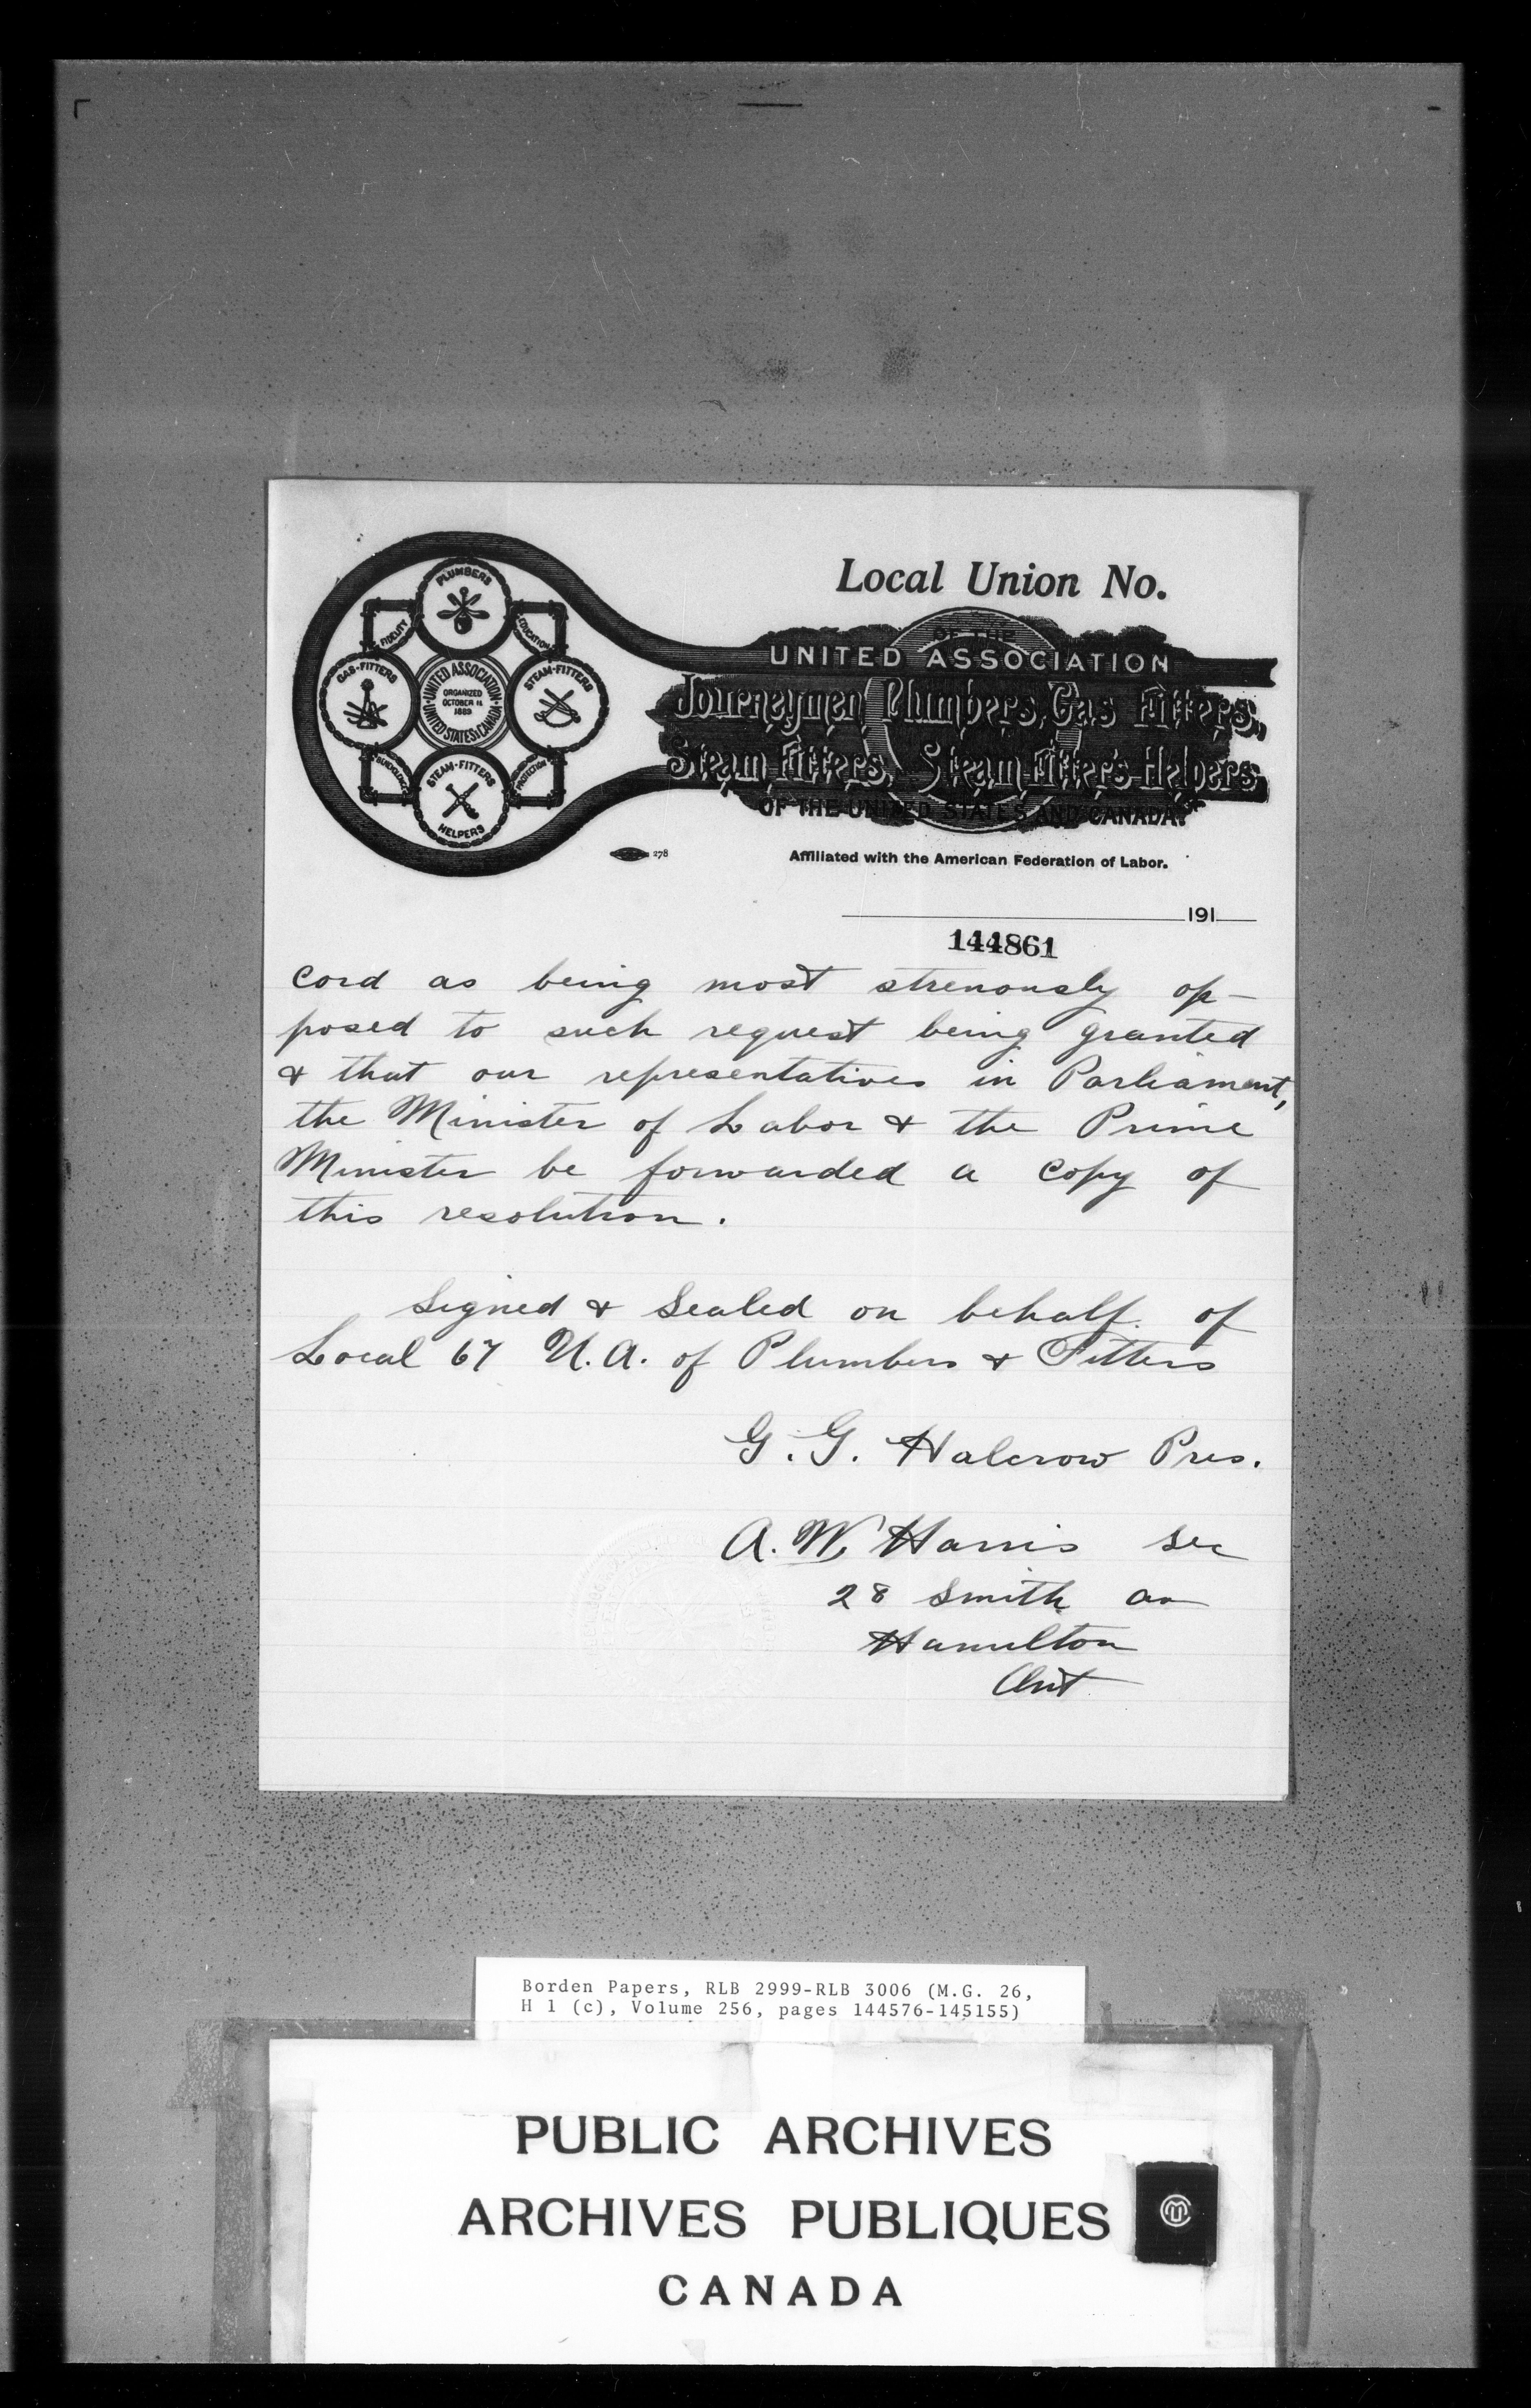 Local Union No.
OF THE
UNITED ASSOCIATION
Journeymen Plumbers, Gas Fitters,
Steam Fitters, Steam Fitter's Helpers
OF THE UNITED STATES AND CANADA
PLUMBERS
FIDELITY
EDUCATION
GAS-FITTERS
UNITED ASSOCIATION
ORGANIZED
OCTOBER 11
1889
UNITED STATES & CANADA
STEAM-FITTERS
BENEVOLENCE
PROTECTION
STEAM-FITTERS
HELPERS
278
Affiliated with the American Federation of Labor.
191
144861
cord as being most strenously op-
posed to such request being granted
& that our representatives in Parliament,
the Minister of Labor & the Prime
Minister be forwarded a copy of
this resolution.
Signed & Sealed on behalf of
Local 67 U.A. of Plumbers & Fitters
G. G. Halcrow Pres.
A. W. Harris Sec
28 Smith av
Hamilton
Ont
Borden Papers, RLB 2999-RLB 3006 (M.G. 26,
H 1 (c), Volume 256, pages 144576-145155)
PUBLIC ARCHIVES
ARCHIVES PUBLIQUES
CANADA